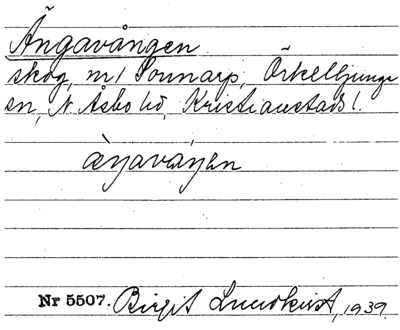 Ängavången
skog, m/ Sonnarp, Örkelljunga
sn, N. Åsbo hd, Kristianstads l.
Nr 5507. Birgit Lundkvist, 1939.